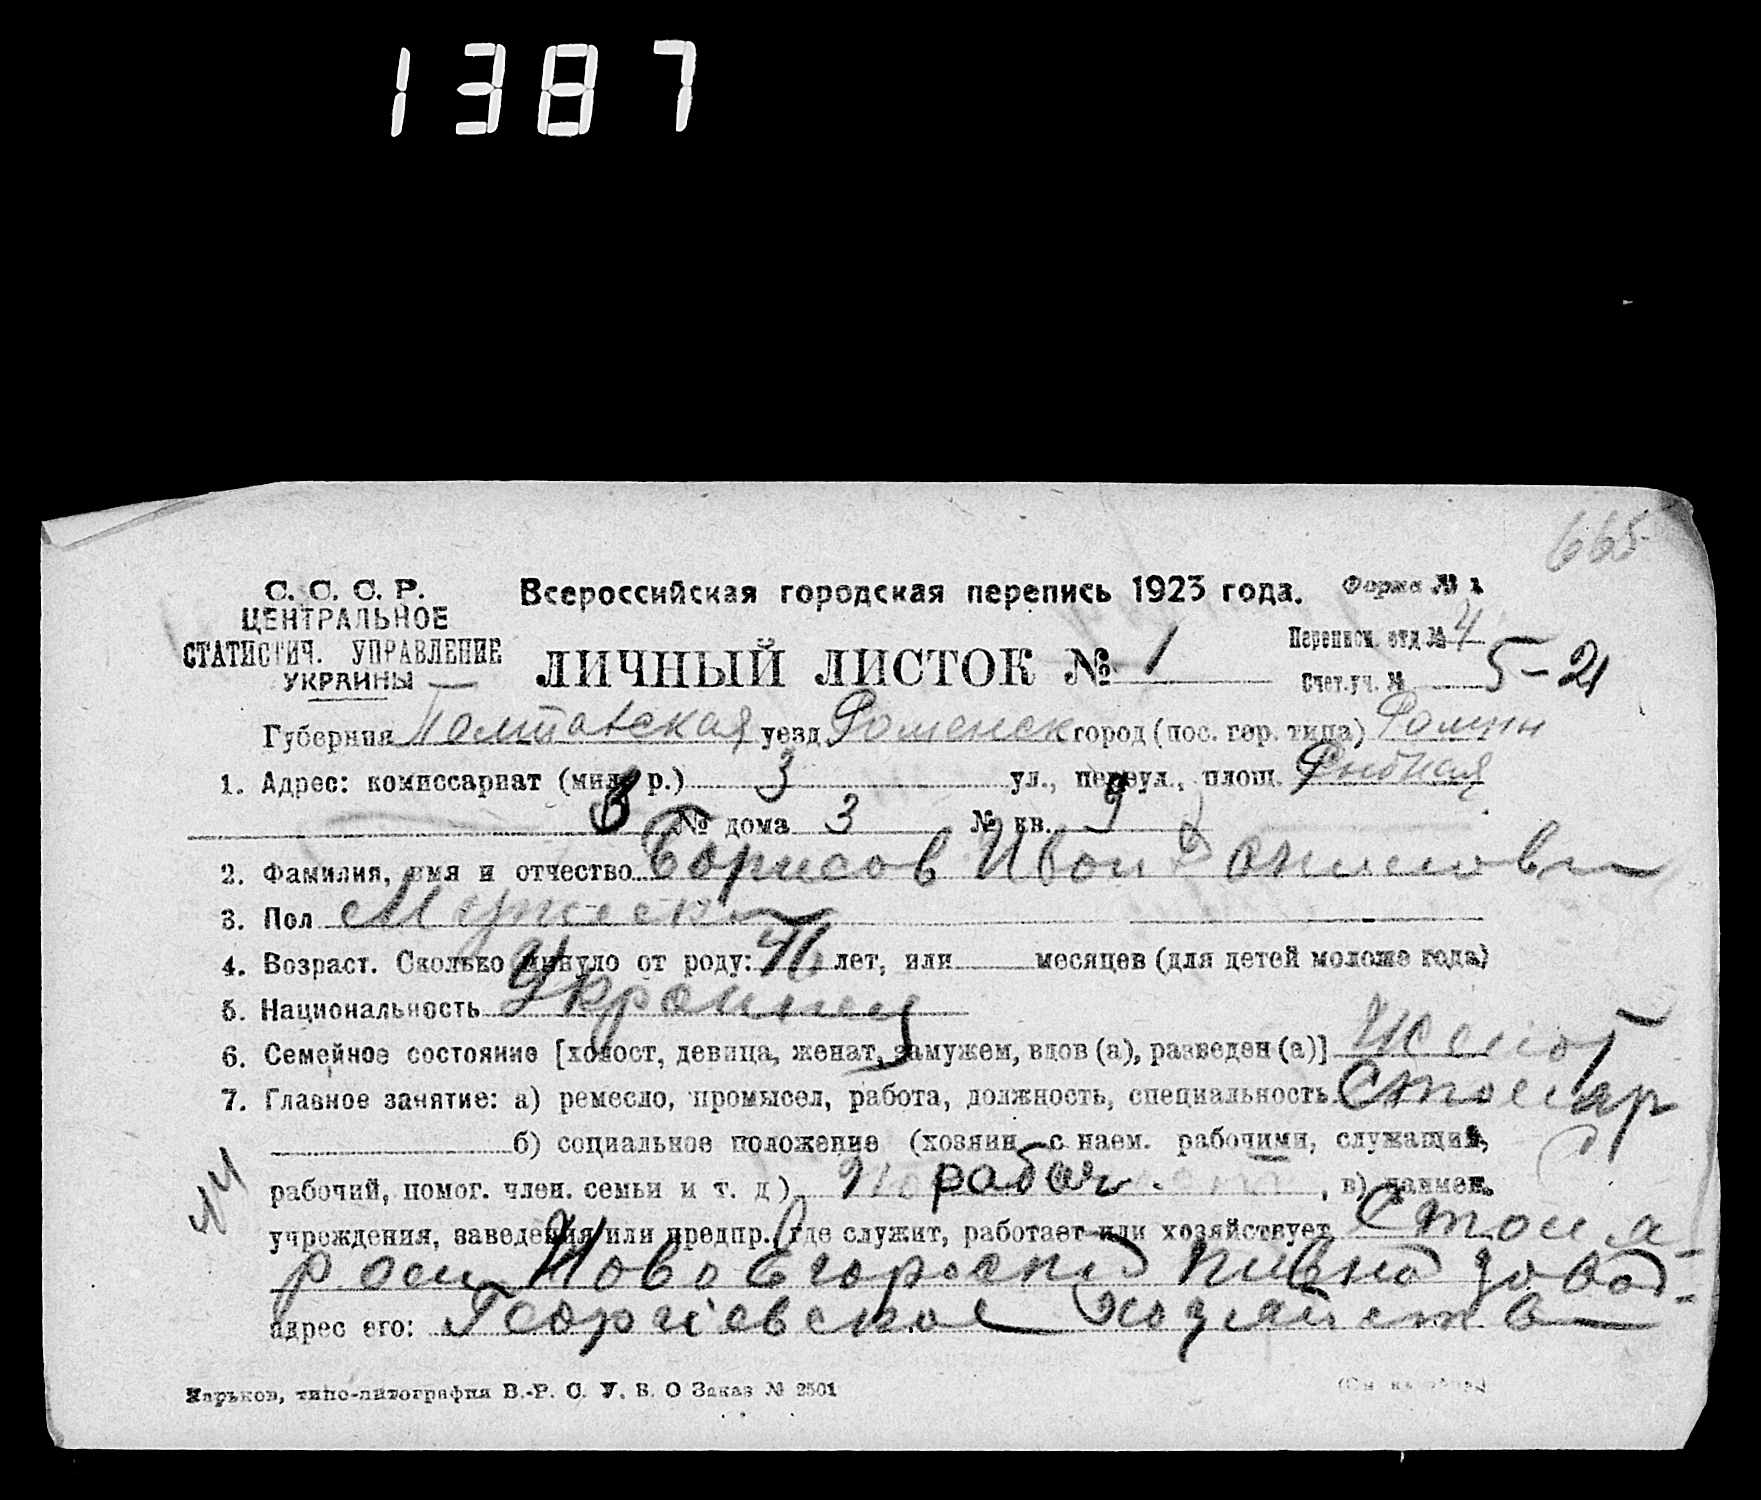 1387
665
С. С. С. Р.
ЦЕНТРАЛЬНОЕ
СТАТИСТИЧ. УПРАВЛЕНИЕ
УКРАИНЫ
Всероссийская городская перепись 1923 года.
Форма № 1
ЛИЧНЫЙ ЛИСТОК № 1
Переписн. отд № 4
Счет.уч. № 5-21
Губерния Полтавская уезд Роменск город (пос. гор. типа) Ромны
1. Адрес: комиссариат (мил. р.) 3 ул., переул., площ. Рыбная
№ дома 3 № кв. 9
2. Фамилия, имя и отчество Борисов Иван Данилови
3. Пол Мужеск
4. Возраст. Сколько минуло от роду: 41 лет, или месяцев (для детей моложе года)
5. Национальность Украинец
6. Семейное состояние [холост, девица, женат, замужем, вдов (а), разведен (а)] Женат
7. Главное занятие: а) ремесло, промысел, работа, должность, специальность Столяр
б) социальное положение (хозяин с наем. рабочими, служащий,
рабочий, помог. член. семьи и т. д.) рабоч. , в) наимен.
учреждения, заведения или предпр. (где служит, работает или хозяйствует Столя-
Ново Егоровский пивно завод.
адрес его: Георгіевское хозяйств
Харьков, типо-литография В.-Р. С. У. В. О Заказ № 2501